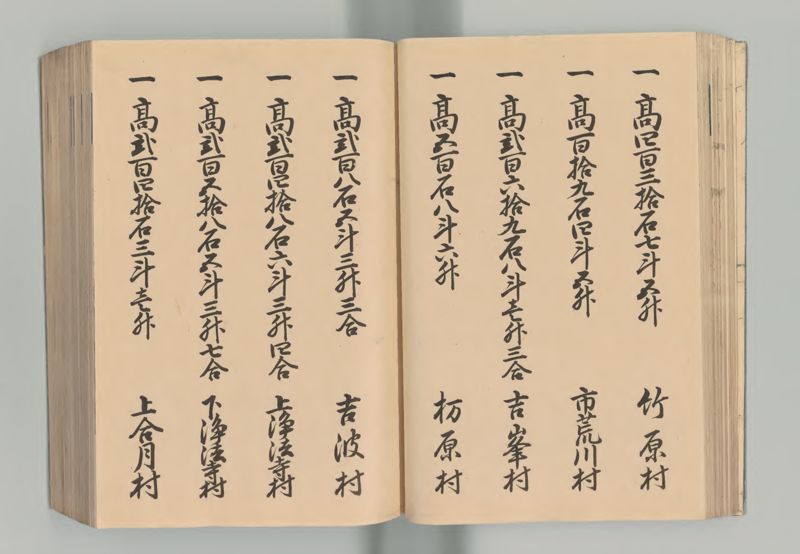 一 高四百三拾石七斗五升 竹原村
一 高百拾九石四斗五升 市荒川村
一 高弐百六拾九石八斗壱升三合 吉峯村
一 高五百石八斗六升 栃原村
一 高弐百八石五斗三升三合 吉波村
一 高弐百四拾八石六斗三升四合 上浄法寺村
一 高弐百五拾八石五斗三升七合 下浄法寺村
一 高弐百四拾石三斗壱升 上合月村